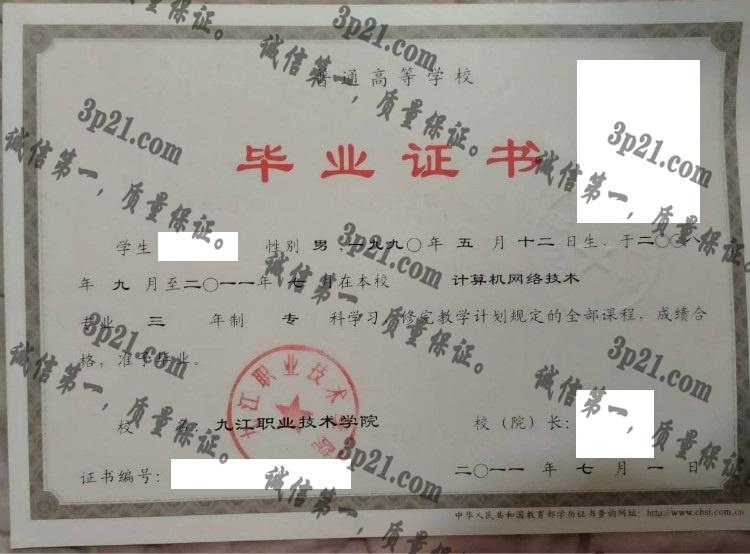 普通高等学校
毕业证书
学生 性别 男 ,一九九〇年 五 月 十二 日生、于二〇〇八
年 九 月至二〇一一年 七 月在本校 计算机网络技术
专业 三 年制 专 科学习,修完教学计划规定的全部课程,成绩合
格,准予毕业。
校 名:九江职业技术学院 校(院)长:
九江职业技术学院
证书编号: 二〇一一 年 七 月 一 日
中华人民共和国教育部学历证书查询网址:http://www.chsi.com.cn
3p21.com
诚信第一,质量保证。
3p21.com
诚信第一,质量保证。
3p21.com
诚信第一,质量保证。
3p21.com
诚信第一,质量保证。
3p21.com
诚信第一,质量保证。
3p21.com
诚信第一,质量保证。
3p21.com
诚信第一,质量保证。
质量保证。